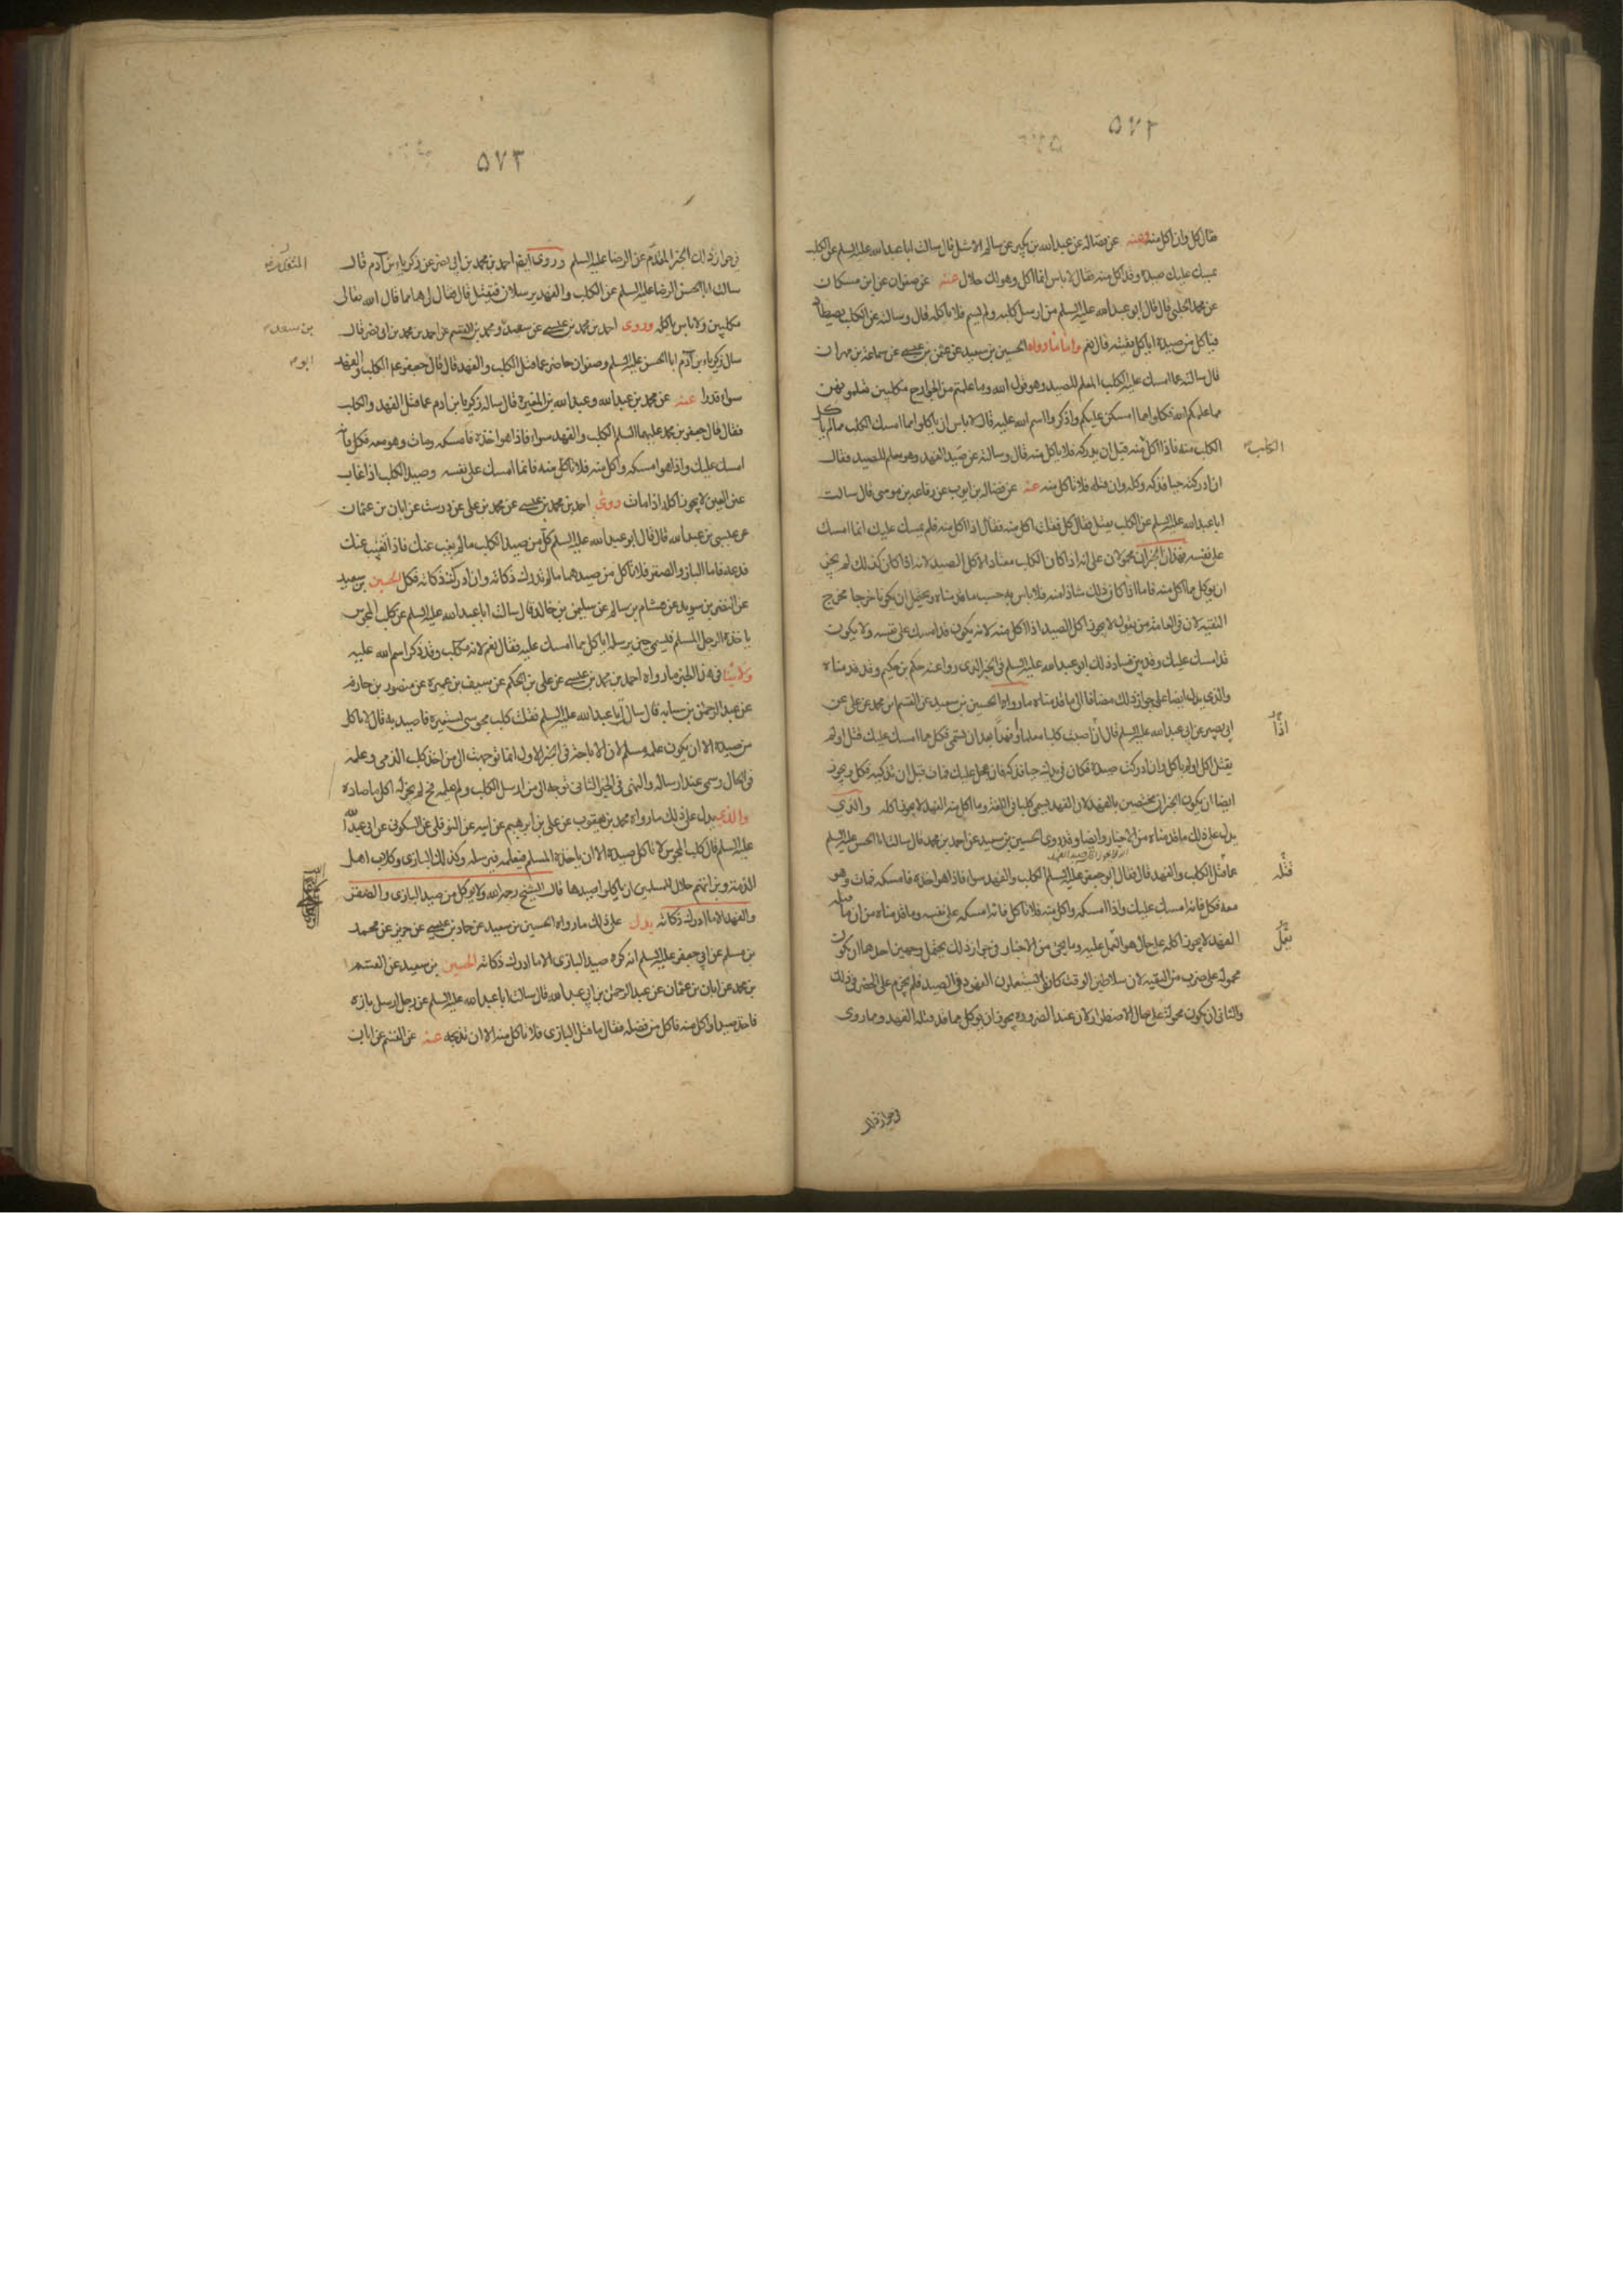 ۵۷۲
فقال كل وان اكل منه عنه عن فضاله عن عبد الله بن بكير عن سالم الاشل قال سالت ابا عبد الله عليه السلم عن الكلب
يمسك عليك صيده وقد اكل منه فقال لاباس انما اكل وهو لك حلال عنه عن صفوان عن ابن مسكان
عن محمد الحلبي قال قال ابو عبد الله عليه السلم من ارسل كلبه ولم يسم فلا ياكله قال وسالته عن الكلب يصطاد
فياكل من صيده اياكل بقيته قال نعم واما ما رواه الحسين بن سعيد عن عثمن بن عيسى عن سماعة بن مهران
قال سالته عما امسك عليه الكلب المعلم للصيد وهو قول الله وما علمتم من الجوارح مكلبين تعلمونهن
مما علمكم الله فكلوا مما امسكن عليكم واذكروا اسم الله عليه قال لا باس ان ياكلوا مما امسك الكلب ما لم ياكل
الكلب منه فاذا اكل منه قبل ان يدركه فلا ياكل منه قال وسالته عن صيد الفهد وهو معلم للصيد فقال
الكلب
ان ادركته حيا فذكه وكله وان قتله فلا تاكل منه عنه عن فضاله بن ايوب عن رفاعه بن موسى قال سالت
ابا عبد الله عليه السلم عن الكلب يقتل فقال كل فقلت اكل منه فقال اذا اكل منه فلم يمسك عليك انما امسك
على نفسه فهذان الخبران محمولان على انه اذا كان الكلب معتادا لاكل الصيد لانه اذا كان كذلك لم يجز
ان يوكل مما اكل منه فاما اذا كان ذلك شاذا منه فلا باس به حسب ما قدمناه ويحتمل ان يكونا خرجا مخرج
التقيه لان في العامة من يقول لا يجوز اكل الصيد اذا اكل منه لانه يكون قد امسك على نفسه ولا يكون
قد امسك عليك وقد بين فساد ذلك ابو عبد الله عليه السلم في الخبر الذى رواه عنه حكم بن حكيم وقد قدمناه
والذى يدل ايضا على جواز ذلك مضافا الى ما قدمناه ما رواه الحسين بن سعيد عن القسم بن محمد عن على عن
ابى بصير عن ابى عبد الله عليه السلم قال ان اصبت كلبا معلما او فهدا بعد ان تسمى فكل مما امسك عليك قتل او لم
يقتل اكل او لم ياكل وان ادركت صيده فكان فى يدك حيا فذكه فان عجل عليك فمات قبل ان تذكيه فكل ويجوز
ايضا ان يكون الخبران مختصين بالفهد لان الفهد يسمى كلبا فى اللغة وما اكل منه الفهد لا يجوز اكله والذى
يدل على ذلك ما قدمناه من الاخبار وايضا وقد روى الحسين بن سعيد عن احمد بن محمد قال سالت ابا الحسن عليه السلم
عما قتل الكلب والفهد قال فقال ابو جعفر عليه السلم الكلب والفهد سواء فاذا هو اخذه فامسكه فمات وهو
قتله
معه فكل فانه امسك عليك واذا امسكه واكل منه فلا تاكل فانه امسكه على نفسه وما قدمناه من ان ما قتله
الفهد لا يجوز اكله على حال هو المعمل عليه وما يجئ من الاخبار فى جواز ذلك يحتمل وجهين احدهما ان يكون
محموله على ضرب من التقيه لان سلاطين الوقت كانوا يستعملون الفهود فى الصيد فلم يجزم على الحضر فى ذلك
والثانى ان يكون محمولة على حال الاضطرار لان عند الضرورة يجوز ان يوكل مما قد قتله الفهد وما روى
فى جواز ذلك
۵۷۳
فى جواز ذلك الخبر المقدم عن الرضا عليه السلم وروى ايضا احمد بن محمد بن ابى نصر عن زكريا بن آدم قال
سالت ابا الحسن الرضا عليه السلم عن الكلب والفهد يرسلان فيقتل قال فقال لى هما مما قال الله تعالى
مكلبين ولا باس باكله وروى احمد بن محمد بن عيسى عن سعيد و محمد بن القسم عن احمد بن محمد بن ابى نصر قال
بن سعد
سال زكريا بن آدم ابا الحسن عليه السلم وصفوان حاضر عما قتل الكلب والفهد قال قال جعفر عم الكلب والفهد
ابو
سواء قدرا عنه عن محمد بن عبد الله وعبد الله بن المغيرة قال ساله زكريا بن ادم عما قتل الفهد والكلب
فقال قال جعفر بن محمد عليهما السلم الكلب والفهد سواء فاذا هو اخذه فامسكه ومات وهو معه فكل فانه
امسك عليك واذا هو امسكه واكل منه فلا تاكل منه فانما امسك على نفسه وصيد الكلب اذا غاب
عن العين لا يجوز اكله اذا مات روى احمد بن محمد بن عيسى عن محمد بن على عن درست عن ابان بن عثمان
عن عيسى بن عبد الله قال قال ابو عبد الله عليه السلم كل من صيد الكلب ما لم يغب عنك فاذا تغيب عنك
فدعه فاما الباز والصقر فلا تاكل من صيدهما ما لم تدرك ذكاته وان ادركت ذكاته فكل الحسين بن سعيد
عن النضر بن سويد عن هشام بن سالم عن سليمن بن خالد قال سالت ابا عبد الله عليه السلم عن كلب المجوس
ياخذه الرجل المسلم فيسمى حين يرسله اياكل مما امسك عليه فقال نعم لانه مكلب وقد ذكر اسم الله عليه
ولا ينافى هذا الخبر ما رواه احمد بن محمد بن عيسى عن على بن الحكم عن سيف بن عميرة عن منصور بن حازم
عن عبد الرحمن بن سيابه قال سال ابا عبد الله عليه السلم فقلت كلب مجوسى استعيره فاصيد به قال لا تاكل
من صيده الا ان يكون علمه مسلم لان الاباحة فى الخبر الاول انما توجهت الى من اخذ كلب الذمى وعلمه
فى الحال وسمى عند ارساله والنهى فى الخبر الثانى توجه الى من ارسل الكلب ولم يعلمه فح لم يجز له اكل ما صاده
والذى يدل على ذلك ما رواه محمد بن يعقوب عن على بن ابرهيم عن ابيه عن النوفلى عن السكونى عن ابى عبد الله
عليه السلم قال كلب المجوس لا تاكل صيده الا ان ياخذه المسلم فيعلمه فيرسله وكذلك البازى وكلاب اهل
الذمة وبزاتهم حلال للمسلمين ان ياكلوا صيدها قال الشيخ رحمه الله ولا يوكل من صيد البازى والصقر
والفهد الا ما ادرك ذكاته يدل على ذلك ما رواه الحسين بن سعيد عن حماد بن عيسى عن حريز عن محمد
بن مسلم عن ابى جعفر عليه السلم انه كره صيد البازى الا ما ادرك ذكاته الحسين بن سعيد عن القسم
بن محمد عن ابان بن عثمان عن عبد الرحمن بن ابى عبد الله قال سالت ابا عبد الله عليه السلم عن رجل ارسل بازه
فاخذ صيدا واكل منه فاكل من فضله فقال ما قتل البازى فلا تاكل منه الا ان تذبحه عنه عن القسم عن ابان